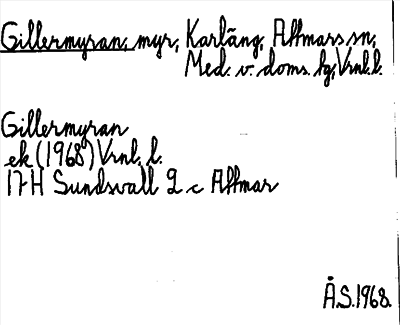 Gillermyran, myr, Karläng, Attmars sn,
Med. v. doms. hg, Vrnl. l.
Gillermyran
ek (1968) Vrnl. l.
17H Sundsvall 2 c Attmar
Å.S. 1968.